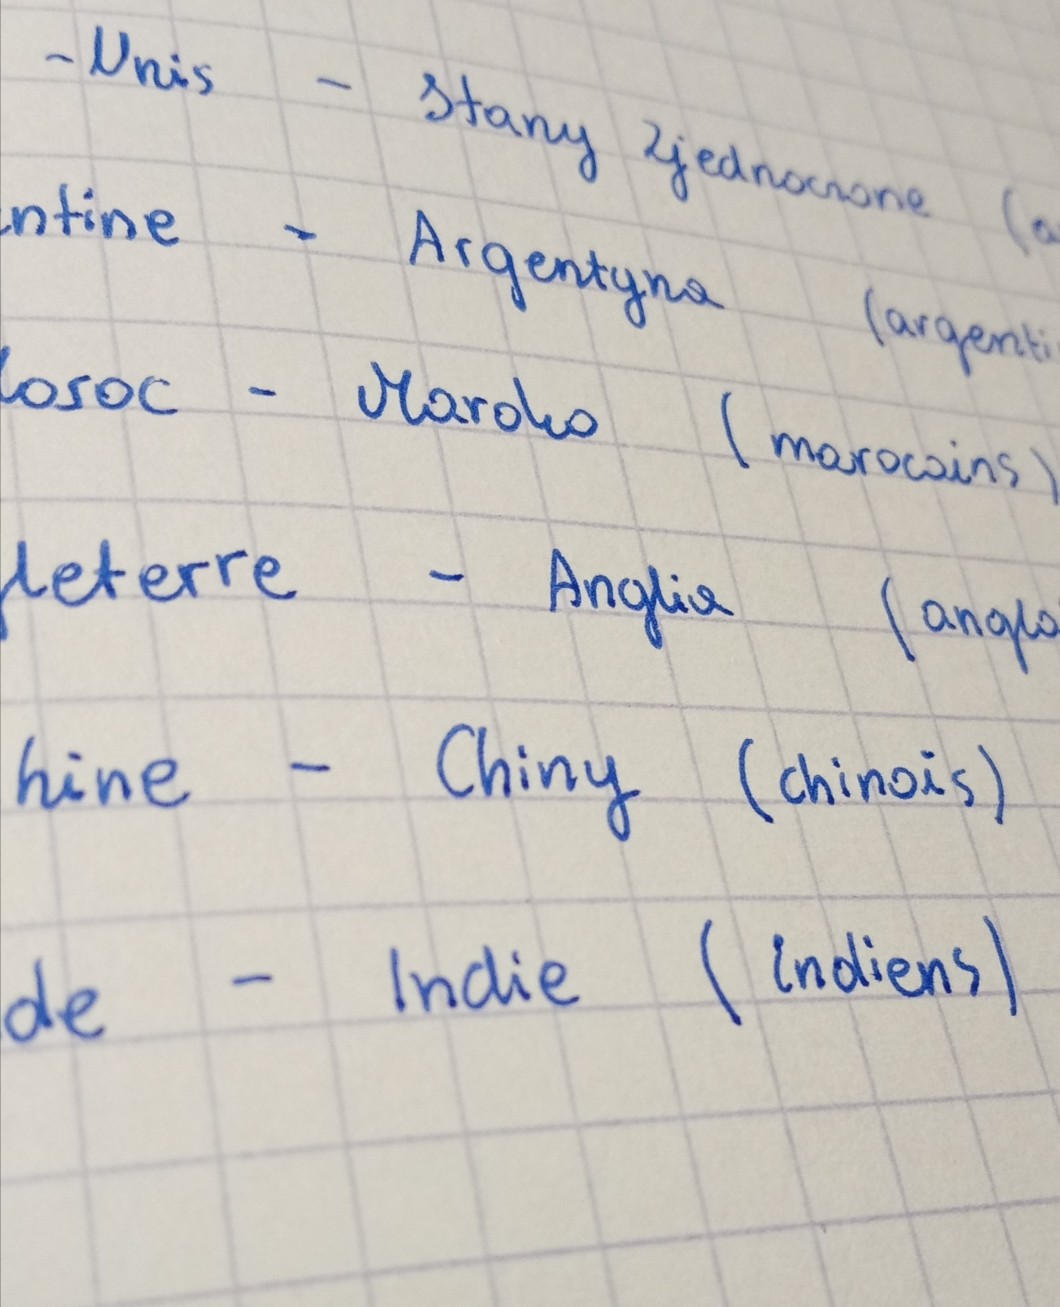 -Unis - Stany Zjednoczone (a
ntine - Argentyna (argenti
osoc - Maroko (marocains)
gleterre - Anglia (angla
hine - Chiny (chinois)
de - Indie (Indiens)